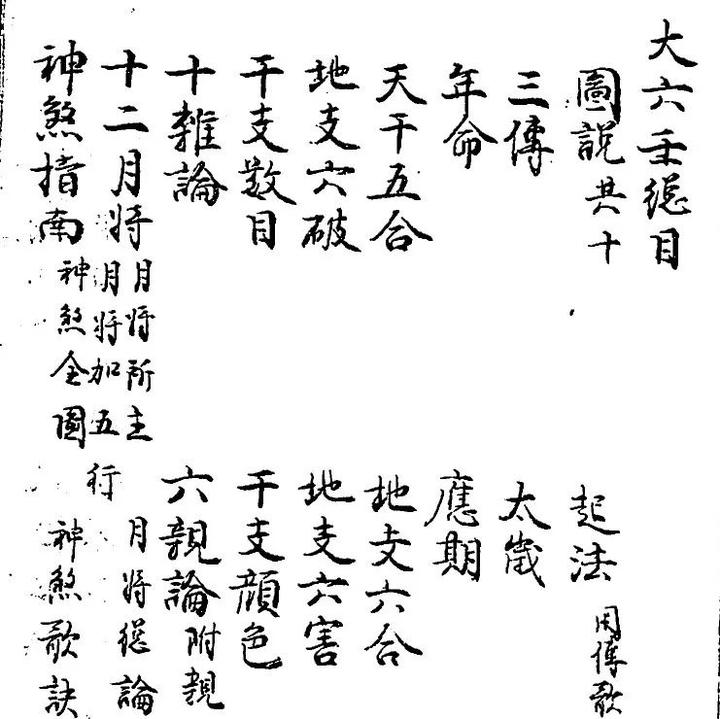 大六壬總目
圖說共十 起法用傳歌
三傳 太歲
年命 應期
天干五合 地支六合
地支六破 地支六害
干支数目 干支顔色
十雜論 六親論附親
十二月將月將所主月將加五行 月將總論
神煞指南神煞全圖 神煞歌訣